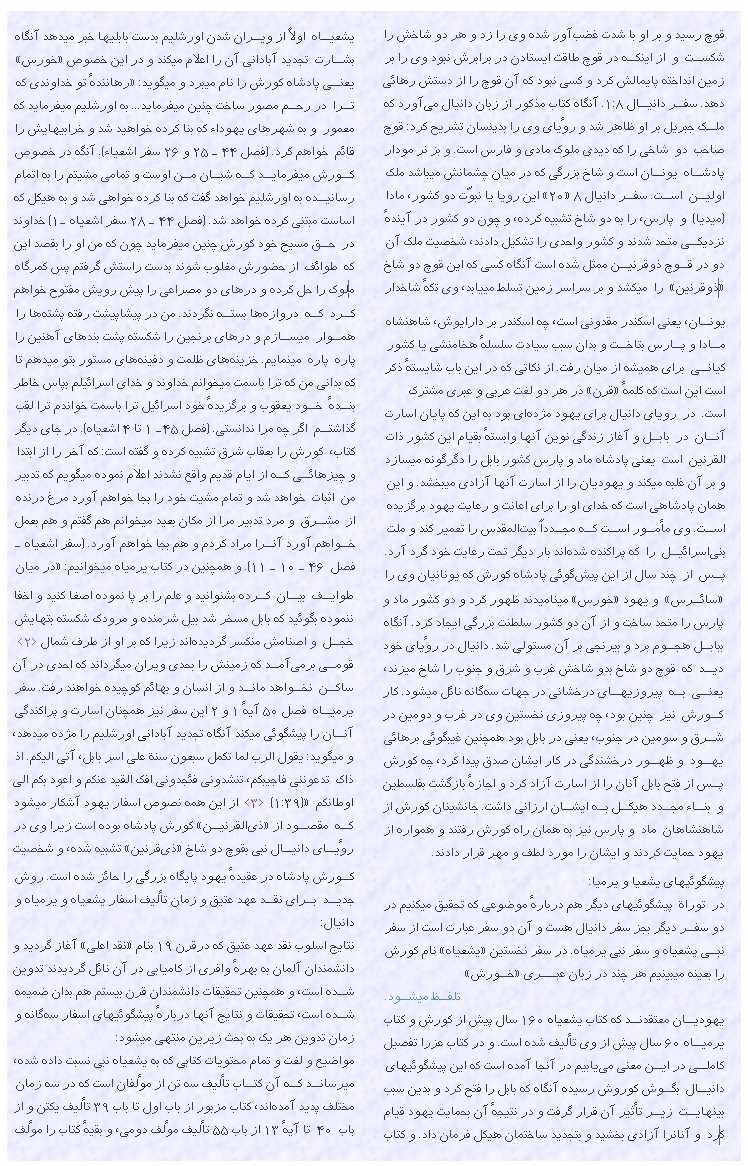 قوچ رسید و بر او با شدت غضب‌آور شده وی را زد و هر دو شاخش را
شکست و از اینکه در قوچ طاقت ایستادن در برابرش نبود وی را بر
زمین انداخته پایمالش کرد و کسی نبود که آن قوچ را از دستش رهائی
دهد. سفر دانیال ۱:۸. آنگاه کتاب مذکور از زبان دانیال می‌آورد که
ملک جبریل بر او ظاهر شد و رؤیای وی را بدینسان تشریح کرد: قوچ
صاحب دو شاخی را که دیدی ملوک مادی و فارس است. و بز نر مودار
پادشاه یونان است و شاخ بزرگی که در میان چشمانش میباشد ملک
اولین است. سفر دانیال ۸ «۲۰» این رویا یا نبوّت دو کشور، مادا
(میدیا) و پارس، را به دو شاخ تشبیه کرده، و چون دو کشور در آیندهٔ
نزدیکی متحد شدند و کشور واحدی را تشکیل دادند، شخصیت ملک آن
دو در قوچ ذوقرنین ممثل شده است آنگاه کسی که این قوچ دو شاخ
«ذوقرنین» را میکشد و بر سراسر زمین تسلط مییابد، وی تکهٔ شاخدار
یونان، یعنی اسکندر مقدونی است، چه اسکندر بر دارایوش، شاهنشاه
مادا و پارس بتاخت و بدان سبب سیادت سلسلهٔ هخامنشی یا کشور
کیانی برای همیشه از میان رفت. از نکاتی که در این باب شایستهٔ ذکر
است این است که کلمهٔ «قرن» در هر دو لغت عربی و عبری مشترک
است. در رویای دانیال برای یهود مژده‌ای بود به این که پایان اسارت
آنان در بابل و آغاز زندگی نوین آنها وابستهٔ بقیام این کشور ذات
القرنین است یعنی پادشاه ماد و پارس کشور بابل را دگرگونه میسازد
و بر آن غلبه میکند و یهودیان را از اسارت آنها آزادی میبخشد. و این
همان پادشاهی است که خدای او را برای اعانت و رعایت یهود برگزیده
است. وی مأمور است که مجدداً بیت‌المقدس را تعمیر کند و ملت
بنی‌اسرائیل را که پراکنده شده‌اند بار دیگر تحت رعایت خود گرد آرد.
پس از چند سال از این پیش‌گوئی پادشاه کورش که یونانیان وی را
«سائرس» و یهود «خورس» مینامیدند ظهور کرد و دو کشور ماد و
پارس را متحد ساخت و از آن دو کشور سلطنت بزرگی ایجاد کرد. آنگاه
ببابل هجوم برد و بیرنجی بر آن مستولی شد. دانیال در رؤیای خود
دید که قوچ دو شاخ بدو شاخش غرب و شرق و جنوب را شاخ میزند،
یعنی به پیروزیهای درخشانی در جهات سه‌گانه نائل میشود. کار
کورش نیز چنین بود، چه پیروزی نخستین وی در غرب و دومین در
شرق و سومین در جنوب، یعنی در بابل بود همچنین غیبگوئی برهائی
یهود و ظهور درخشندگی در کار ایشان صدق پیدا کرد، چه کورش
پس از فتح بابل آنان را از اسارت آزاد کرد و اجازهٔ بازگشت بفلسطین
و بناء مجدد هیکل به ایشان ارزانی داشت. جانشینان کورش از
شاهنشاهان ماد و پارس نیز به همان راه کورش رفتند و همواره از
یهود حمایت کردند و ایشان را مورد لطف و مهر قرار دادند.
پیشگوئیهای یشعیا و یرمیا:
در توراة پیشگوئیهای دیگر هم دربارهٔ موضوعی که تحقیق میکنیم در
دو سفر دیگر بجز سفر دانیال هست و آن دو سفر عبارت است از سفر
نبی یشعیاه و سفر نبی یرمیاه. در سفر نخستین «یشعیاه» نام کورش
را بعینه میبینیم هر چند در زبان عبری «خورش»
تلفظ میشود.
یهودیان معتقدند که کتاب یشعیاه ۱۶۰ سال پیش از کورش و کتاب
یرمیاه ۶۰ سال پیش از وی تألیف شده است. و در کتاب عزرا تفصیل
کاملی در این معنی می‌یابیم در آنجا آمده است که این پیشگوئیهای
دانیال بگوش کوروش رسیده آنگاه که بابل را فتح کرد و بدین سبب
بینهایت زیر تأثیر آن قرار گرفت و در نتیجهٔ آن بحمایت یهود قیام
کرد و آنانرا آزادی بخشید و بتجدید ساختمان هیکل فرمان داد. و کتاب
یشعیاه اولاً از ویران شدن اورشلیم بدست بابلیها خبر میدهد آنگاه
بشارت تجدید آبادانی آن را اعلام میکند و در این خصوص «خورس»
یعنی پادشاه کورش را نام میبرد و میگوید: «رهانندهٔ تو خداوندی که
ترا در رحم مصور ساخت چنین میفرماید... به اورشلیم میفرماید که
معمور و به شهرهای یهوداء که بنا کرده خواهید شد و خرابیهایش را
قائم خواهم کرد. (فصل ۴۴ ـ ۲۵ و ۲۶ سفر اشعیاء). آنگه در خصوص
کورش میفرماید که شبان من اوست و تمامی مشیتم را به اتمام
رسانیده به اورشلیم خواهد گفت که بنا کرده خواهی شد و به هیکل که
اساست مبتنی کرده خواهد شد. (فصل ۴۴ ـ ۲۸ سفر اشعیاه ـ ۱) خداوند
در حق مسیح خود کورش چنین میفرماید چون که من او را بقصد این
که طوائف از حضورش مغلوب شوند بدست راستش گرفتم پس کمرگاه
ملوک را حل کرده و درهای دو مصراعی را پیش رویش مفتوح خواهم
کرد که دروازه‌ها بسته نگردند. من در پیشاپیشت رفته پشته‌ها را
هموار میسازم و درهای برنجین را شکسته پشت بندهای آهنین را
پاره پاره مینمایم. خزینه‌های ظلمت و دفینه‌های مستور بتو میدهم تا
که بدانی من که ترا باسمت میخوانم خداوند و خدای اسرائیلم بپاس خاطر
بندهٔ خود یعقوب و برگزیدهٔ خود اسرائیل ترا باسمت خواندم ترا لقب
گذاشتم اگر چه مرا ندانستی. (فصل ۴۵ـ ۱ تا ۴ اشعیاه). در جای دیگر
کتاب، کورش را بعقاب شرق تشبیه کرده و گفته است: که آخر را از ابتدا
و چیزهائی که از ایام قدیم واقع نشدند اعلام نموده میگویم که تدبیر
من اثبات خواهد شد و تمام مشیت خود را بجا خواهم آورد مرغ درنده
از مشرق و مرد تدبیر مرا از مکان بعید میخوانم هم گفتم و هم بعمل
خواهم آورد آنرا مراد کردم و هم بجا خواهم آورد. (سفر اشعیاه ـ
فصل ۴۶ ـ ۱۰ ـ ۱۱). و همچنین در کتاب یرمیاه میخوانیم: «در میان
طوایف بیان کرده بشنوانید و علم را بر پا نموده اصغا کنید و اخفا
ننموده بگوئید که بابل مسخر شد بیل شرمنده و مرودک شکسته بتهایش
خجل و اصنامش منکسر گردیده‌اند زیرا که بر او از طرف شمال <۲>
قومی برمی‌آمد که زمینش را بحدی ویران میگرداند که احدی در آن
ساکن نخواهد ماند و از انسان و بهائم کوچیده خواهند رفت. سفر
یرمیاه فصل ۵۰ آیهٔ ۱ و ۲ این سفر نیز همچنان اسارت و پراکندگی
آنان را پیشگوئی میکند آنگاه تجدید آبادانی اورشلیم را مژده میدهد،
و میگوید: یقول الرب لما تکمل سبعون سنة علی اسر بابل، آتی الیکم. اذ
ذاک تدعوننی فاجیبکم، تنشدونی فتجدونی افک القید عنکم و اعود بکم الی
اوطانکم «(۱:۳۹) <۳> از این همه نصوص اسفار یهود آشکار میشود
که مقصود از «ذی‌القرنین» کورش پادشاه بوده است زیرا وی در
رویای دانیال نبی بقوچ دو شاخ «ذی‌قرنین» تشبیه شده، و شخصیت
کورش پادشاه در عقیدهٔ یهود پایگاه بزرگی را حائز شده است. روش
جدید برای نقد عهد عتیق و زمان تألیف اسفار یشعیاه و یرمیاه و
دانیال:
نتایج اسلوب نقد عهد عتیق که درقرن ۱۹ بنام «نقد اعلی» آغاز گردید و
دانشمندان آلمان به بهرهٔ وافری از کامیابی در آن نائل گردیدند تدوین
شده است، و همچنین تحقیقات دانشمندان قرن بیستم هم بدان ضمیمه
شده است، تحقیقات و نتایج آنها دربارهٔ پیشگوئیهای اسفار سه‌گانه و
زمان تدوین هر یک به بحث زیرین منتهی میشود:
مواضیع و لغت و تمام محتویات کتابی که به یشعیاه نبی نسبت داده شده،
میرساند که آن کتاب تألیف سه تن از مولفان است که در سه زمان
مختلف پدید آمده‌اند، کتاب مزبور از باب اول تا باب ۳۹ تألیف یکتن و از
باب ۴۰ تا آیهٔ ۱۳ از باب ۵۵ تألیف مولف دومی، و بقیهٔ کتاب را مولف